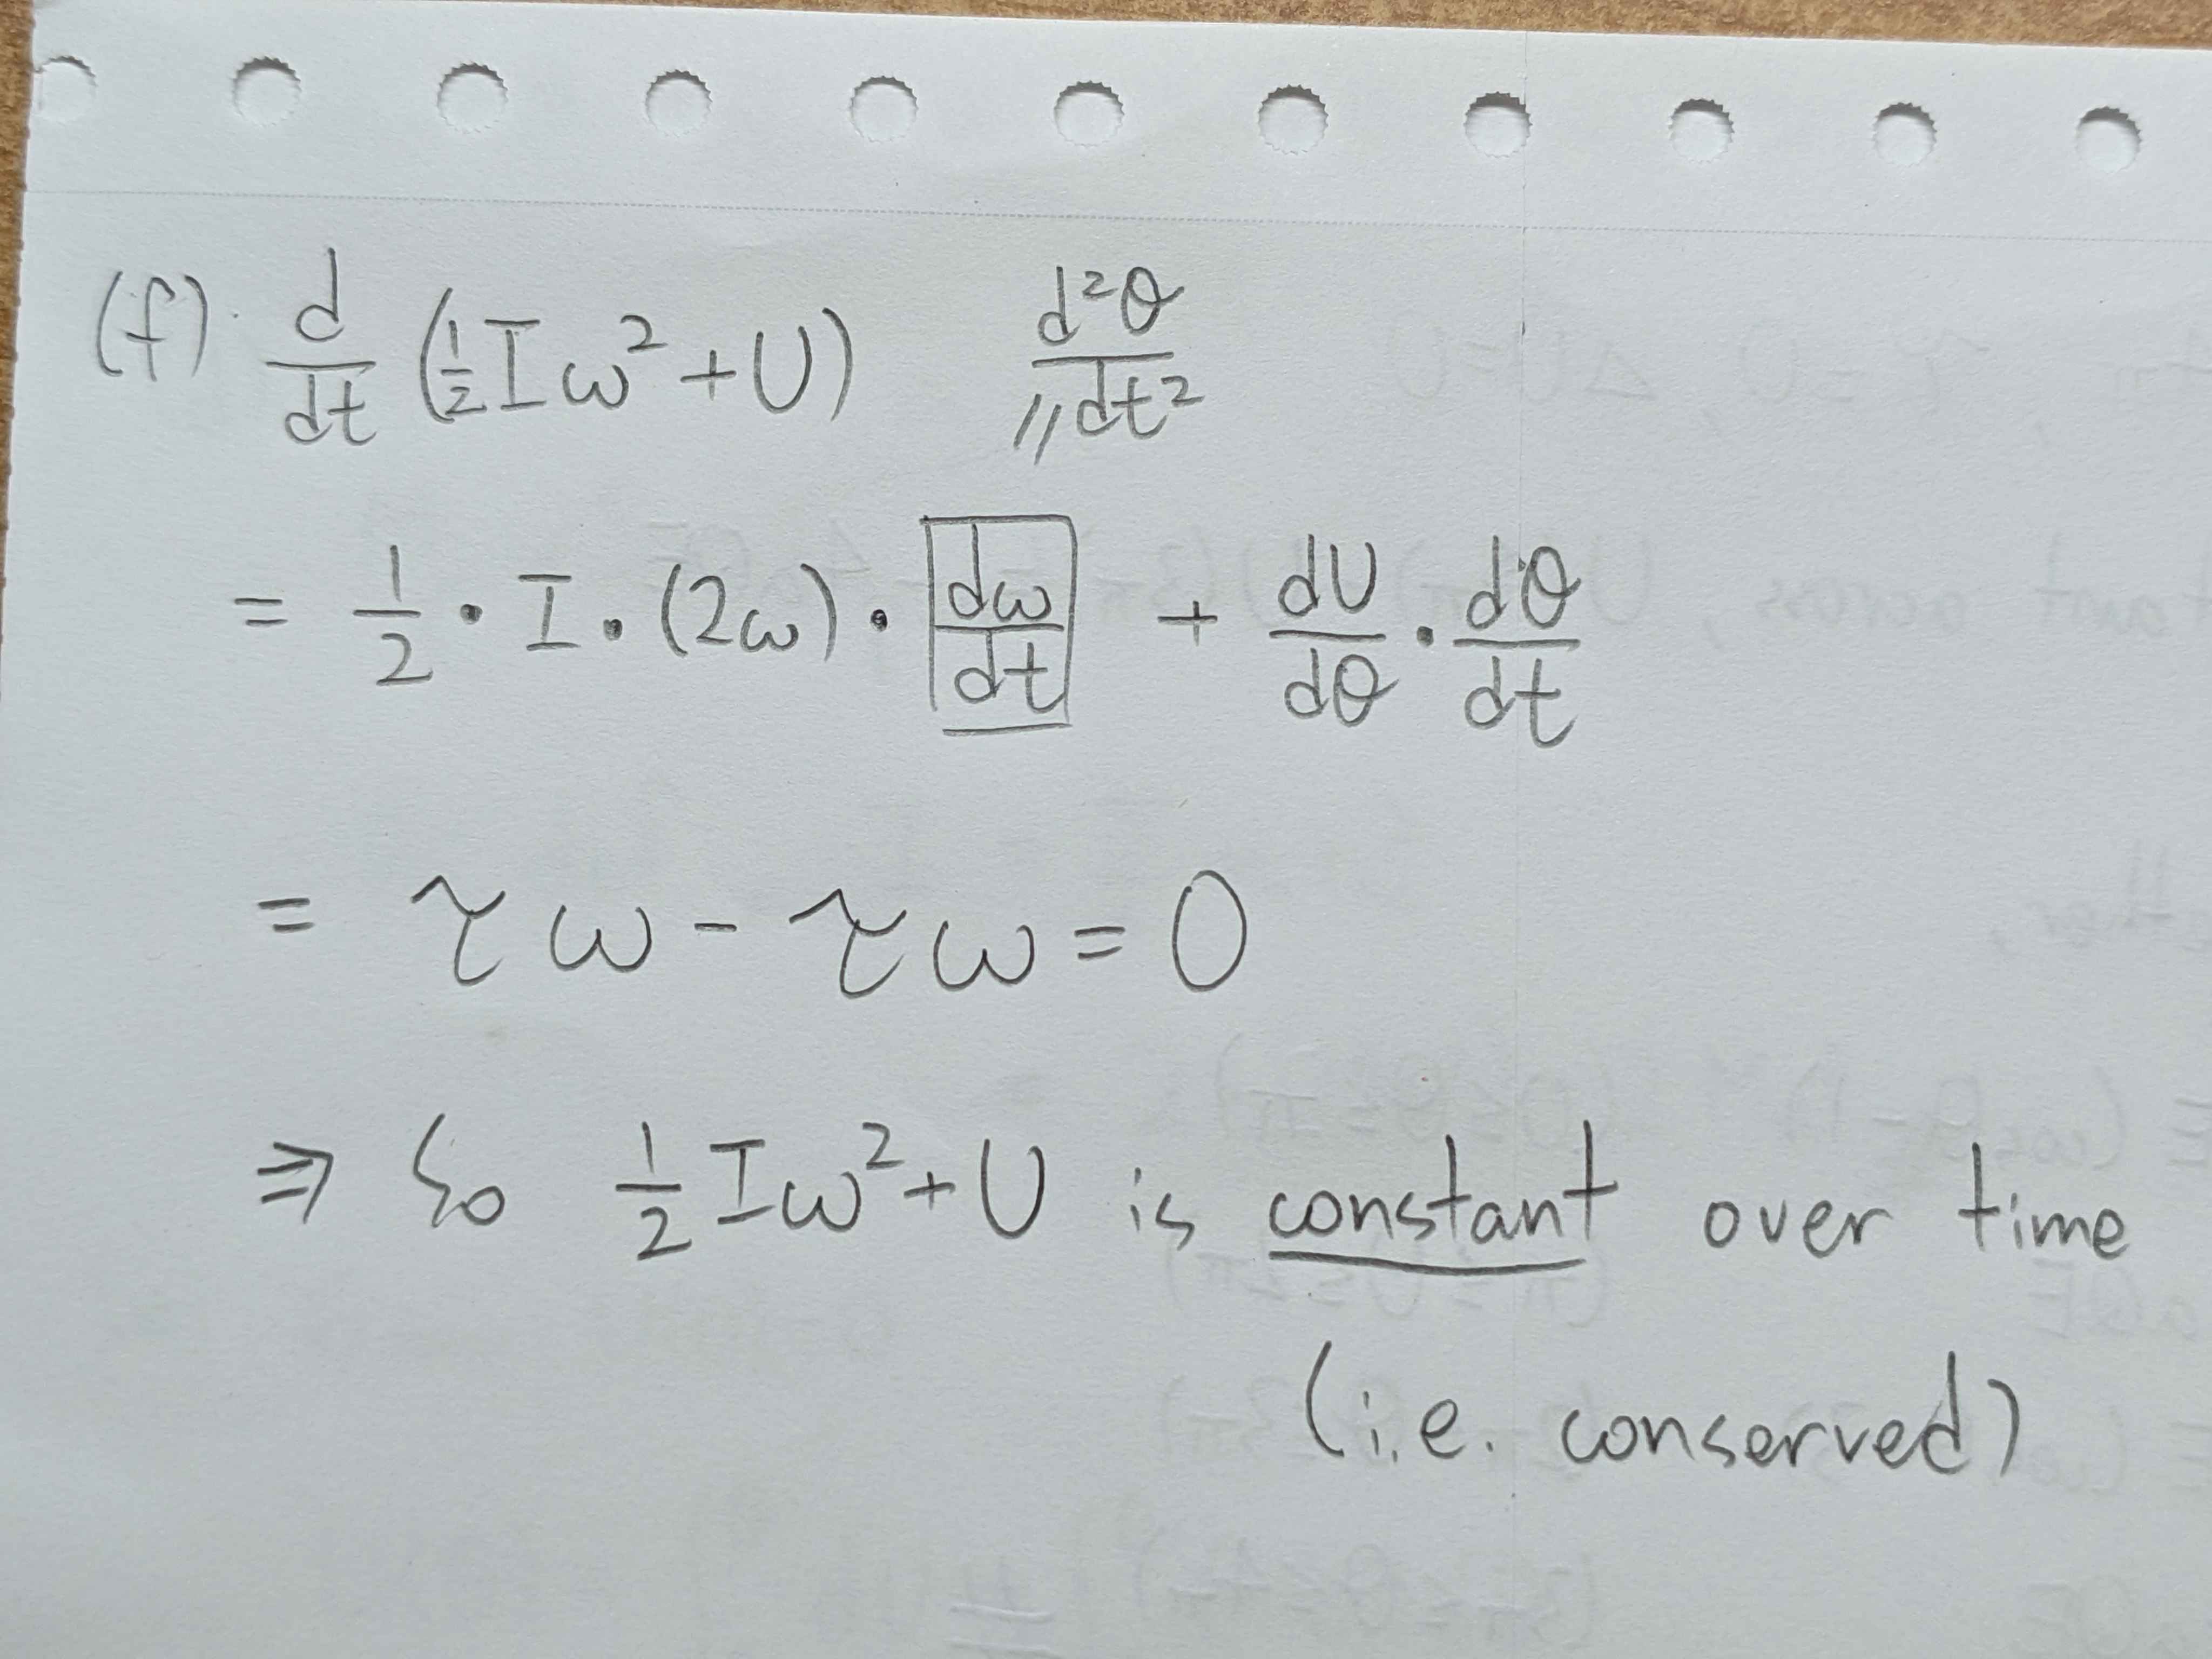 (f) d/dt (½Iω² + U) d²θ/dt²
= 1/2 · I · (2ω) · dω/dt + dU/dθ · dθ/dt
= τω - τω = 0
⇒ So 1/2 Iω² + U is constant over time
(i.e. conserved)